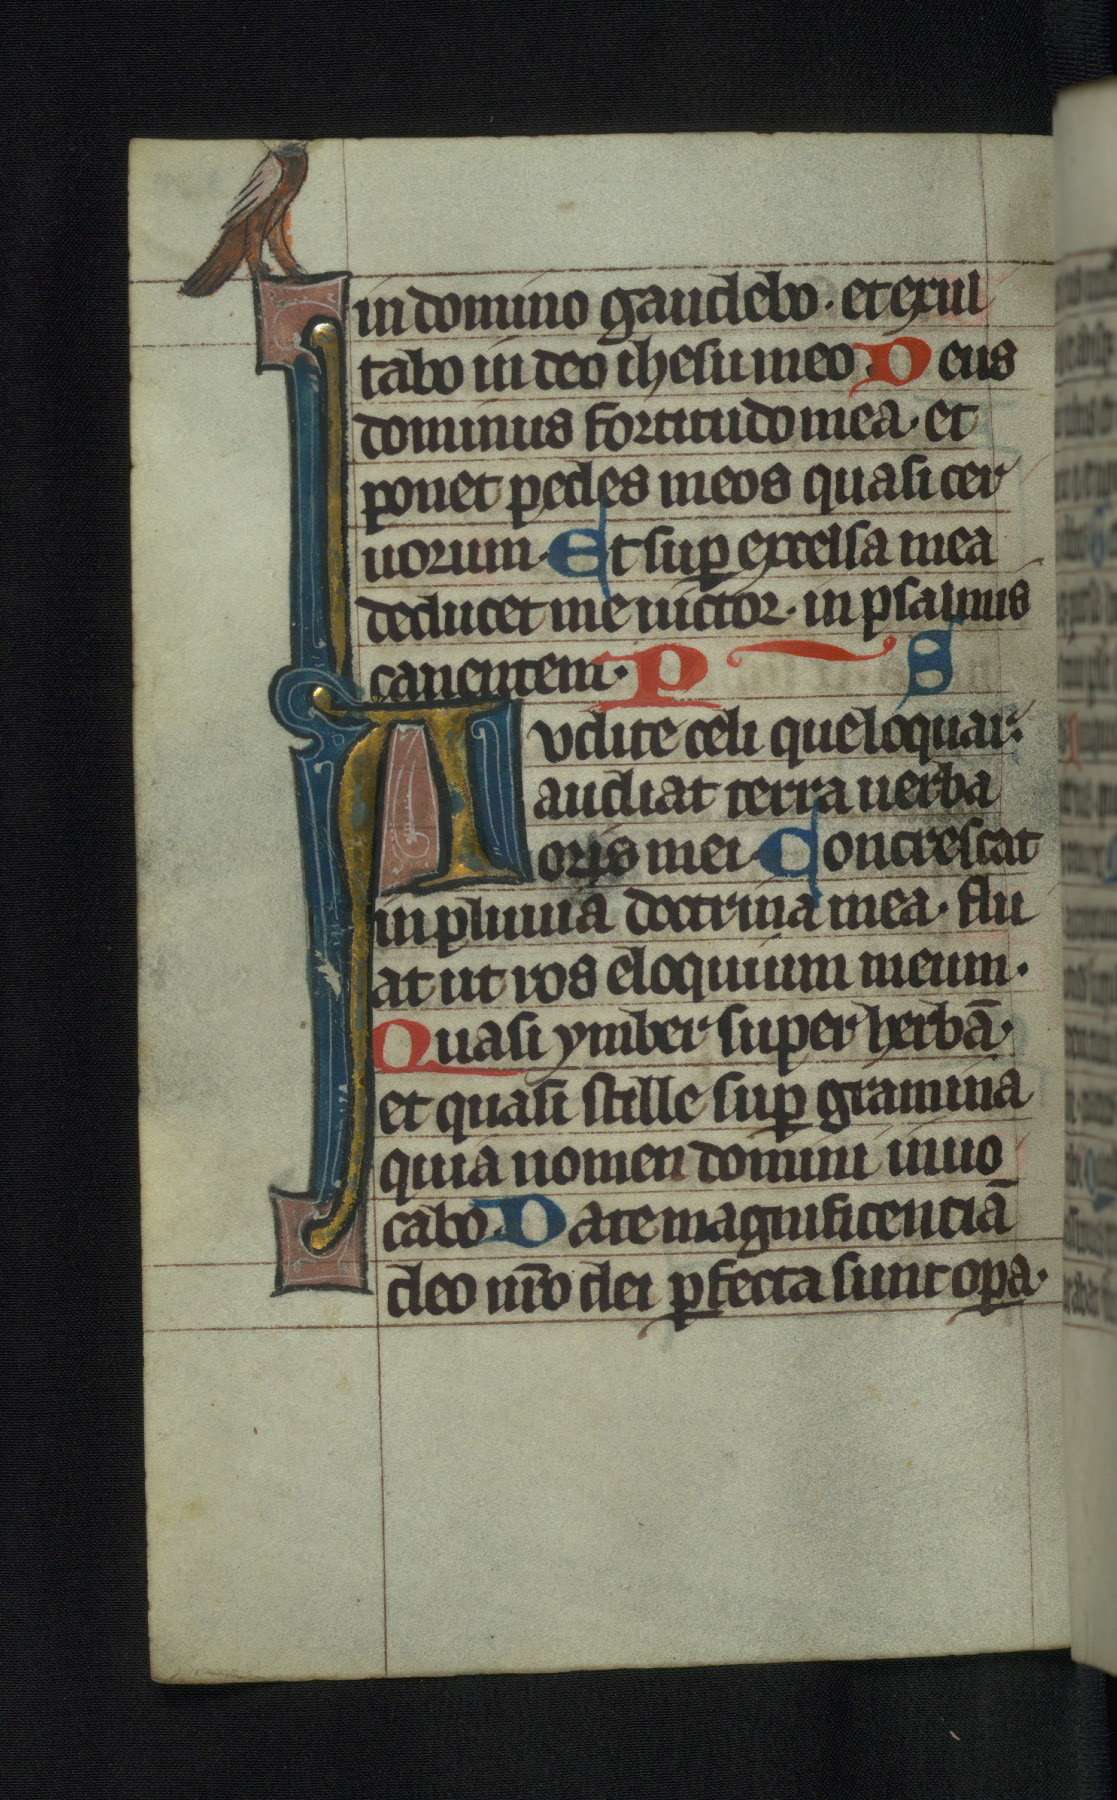 in domino gaudebo · et exul
tabo in deo ihesu meo Deus
dominus fortitudo mea · et
ponet pedes meos quasi cer
uorum · Et sup excelsa mea
deducet me uictor · in psalmis
canentem · P S
Audite celi que loquar:
audiat terra uerba
oris mei · Concrescat
in pluuia doctrina mea · flu
at ut ros eloquium meum ·
Quasi ymber super herbā ·
et quasi stille sup gramina
quia nomen domini inuo
cabo · Date magnificenciā
deo nr̄o dei pfecta sunt opa ·